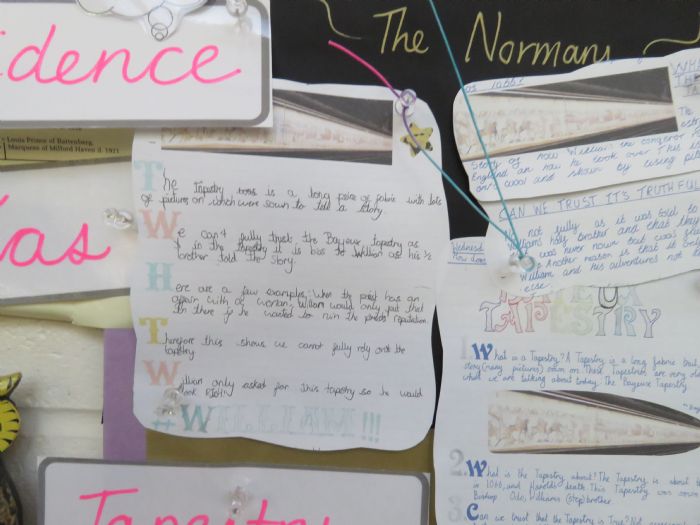 The Normans
idence
Louis Prince of Battenberg,
Marquess of Milford Haven d. 1921
ias
The Tapestry is a long piece of fabric with lots
of pictures on which were sown to told a story.
We can't fully trust the Bayeux tapestry as
in the tapestry it is bias to William as his 1/2
brother told the story.
Here are a few examples: When the priest has an
affair with a woman, William would only put that
in there if he wanted to ruin the priests reputation.
Therefore this shows we cannot fully rely on the
tapestry
William only asked for this tapestry so he would
look
#WILLIAM!!!
Tapestry
WHA
Story of how William the conqueror
England an how he took over This is
on is wool and shown by using
CAN WE TRUST IT'S TRUTHFUL
not fully as it was told to
Williams holy brother and that they
was never nown but was
Another reason is that it
William and his adventures not
else.
TAPESTRY
1. What is a Tapestry? A Tapestry is a long fabric
story (many pictures) sown on. These Tapestries are very
what we are talking about today. The Bayeuse Tapestry
2. What is the Tapestry about? The Tapestry is about
in 1066, and Harolds death. This Tapestry was
Bishop Odo, Williams (step) brother.
3. Can we trust that the Tapestry is True?